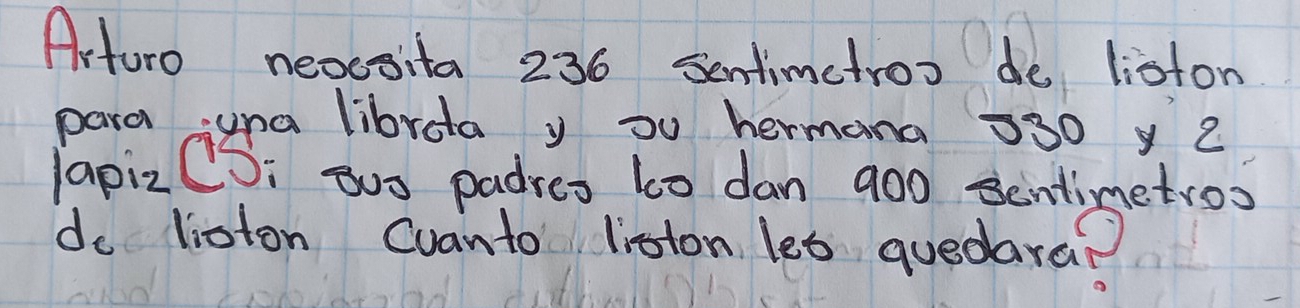 Arturo necesita 236 sentimetros de liston
para una libreta y su hermana 530 y 2
lapiz ¿Si sus padres les dan 900 sentimetros
de liston Cuanto liston les quedara?